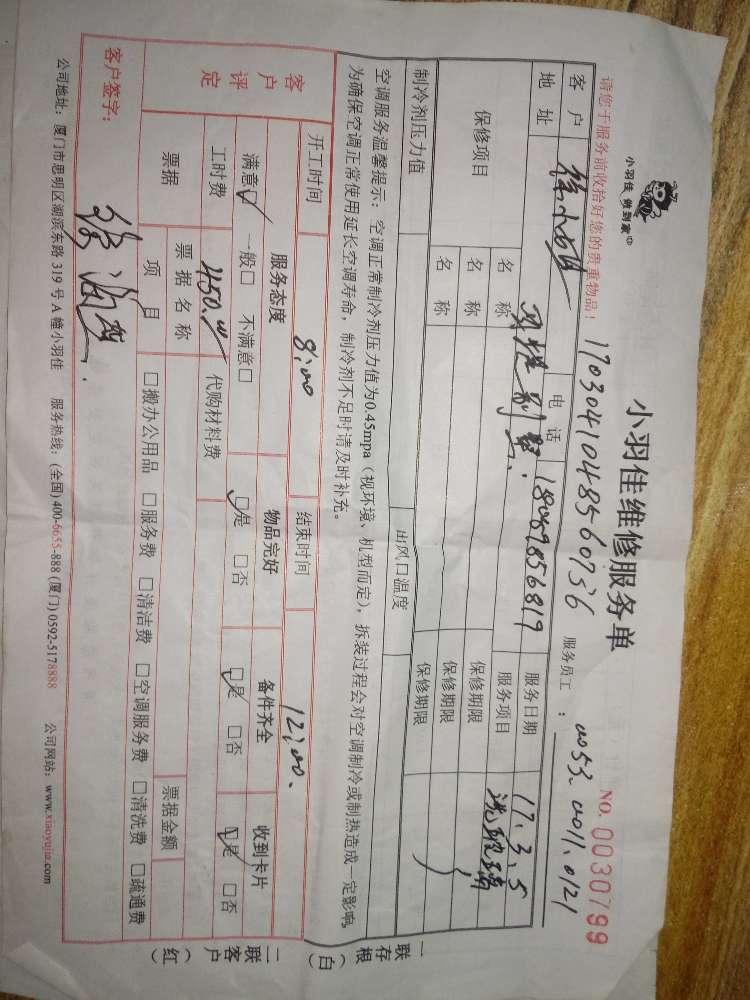 小羽佳 做到家
小羽佳维修服务单
NO. 0030799
请您于服务前收拾好您的贵重物品！
1703041048560756
服务员工：0053.0011.0121
客户 电话 18059856819 服务日期 17.3.5
地址 服务项目 洗玻璃
保修项目 名称 保修期限
名称 保修期限
名称 保修期限
制冷剂压力值 出风口温度
空调服务温馨提示：空调正常制冷剂压力值为0.45mpa（视环境、机型而定），拆装过程会对空调制冷或制热造成一定影响，
为确保空调正常使用延长空调寿命，制冷剂不足时请及时补充。
开工时间 8:00 结束时间 12:00.
客户评定 服务态度 物品完好 备件齐全 收到卡片
满意☑ 一般□ 不满意□ ☑是 □否 ☑是 □否 ☑是 □否
工时费 450.00 代购材料费
票据 票据名称 票据金额
项目 □搬办公用品 □服务费 □清洁费 □空调服务费 □清洗费 □疏通费
客户签字：
公司地址：厦门市思明区湖滨东路319号A幢小羽佳 服务热线：(全国) 400-6655-888 (厦门) 0592-5178888 公司网站：www.xiaoyujia.com
一联存根（白）
二联客户（红）